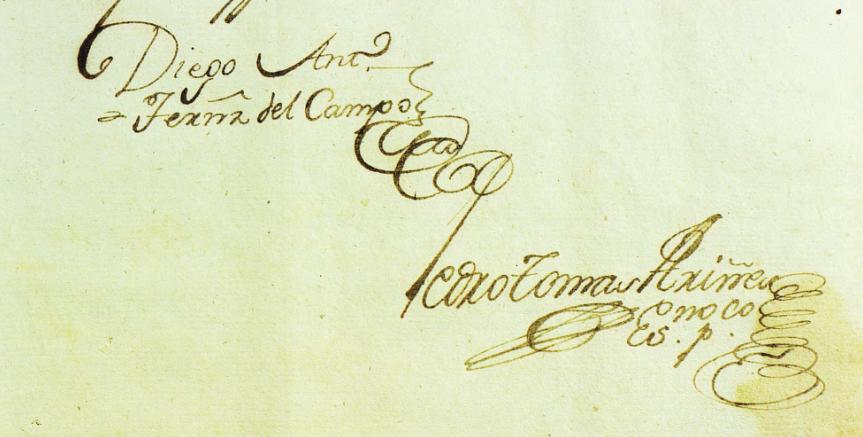 Diego Antº
= Fern̄z del Campo
Pedro Tomas Ariñez
Onoco
Es. p.